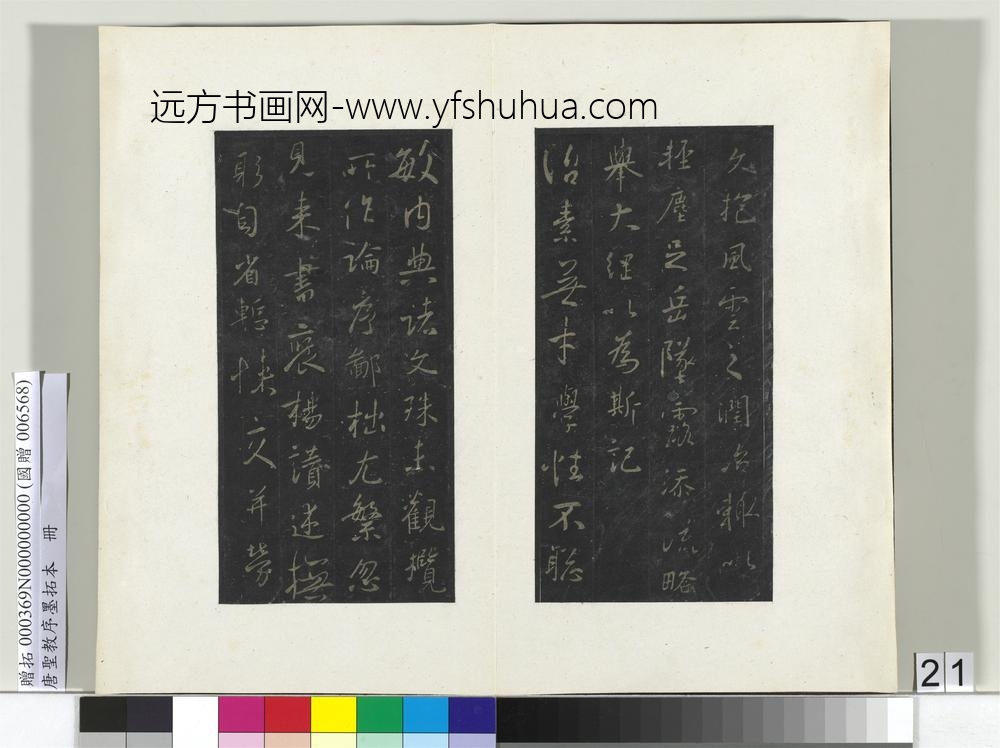 远方书画网-www.yfshuhua.com
久抱風雲之潤治輒以
輕塵足岳墜露添流略
舉大綱以為斯記
治素無才學性不聡
敏內典諸文殊未觀攬
所作論序鄙拙尤繁忽
見來書褒揚讃述撫
躬自省慙悚交并勞
贈拓 000369N000000000 (國贈 006568)
唐聖教序墨拓本 冊
21